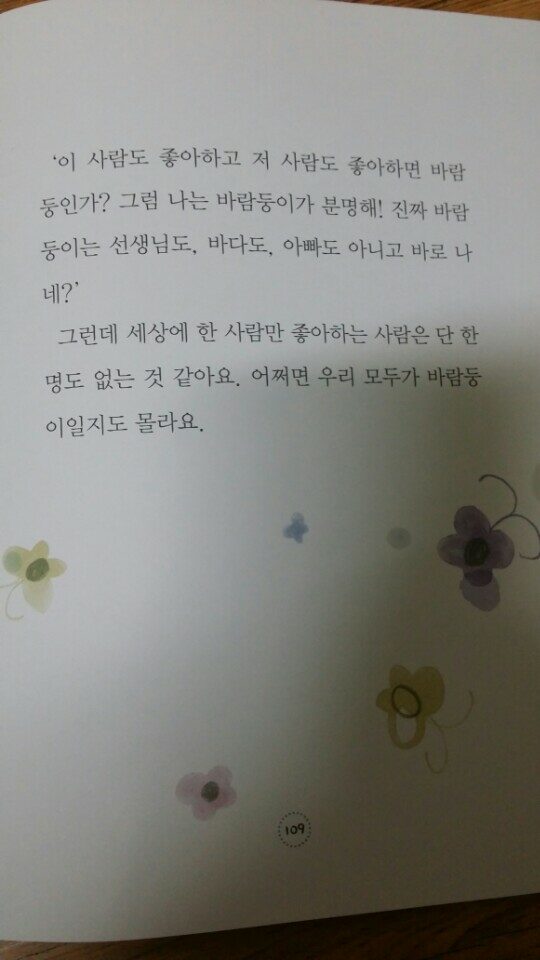 ‘이 사람도 좋아하고 저 사람도 좋아하면 바람
둥인가? 그럼 나는 바람둥이가 분명해! 진짜 바람
둥이는 선생님도, 바다도, 아빠도 아니고 바로 나
네?’
그런데 세상에 한 사람만 좋아하는 사람은 단 한
명도 없는 것 같아요. 어쩌면 우리 모두가 바람둥
이일지도 몰라요.
109